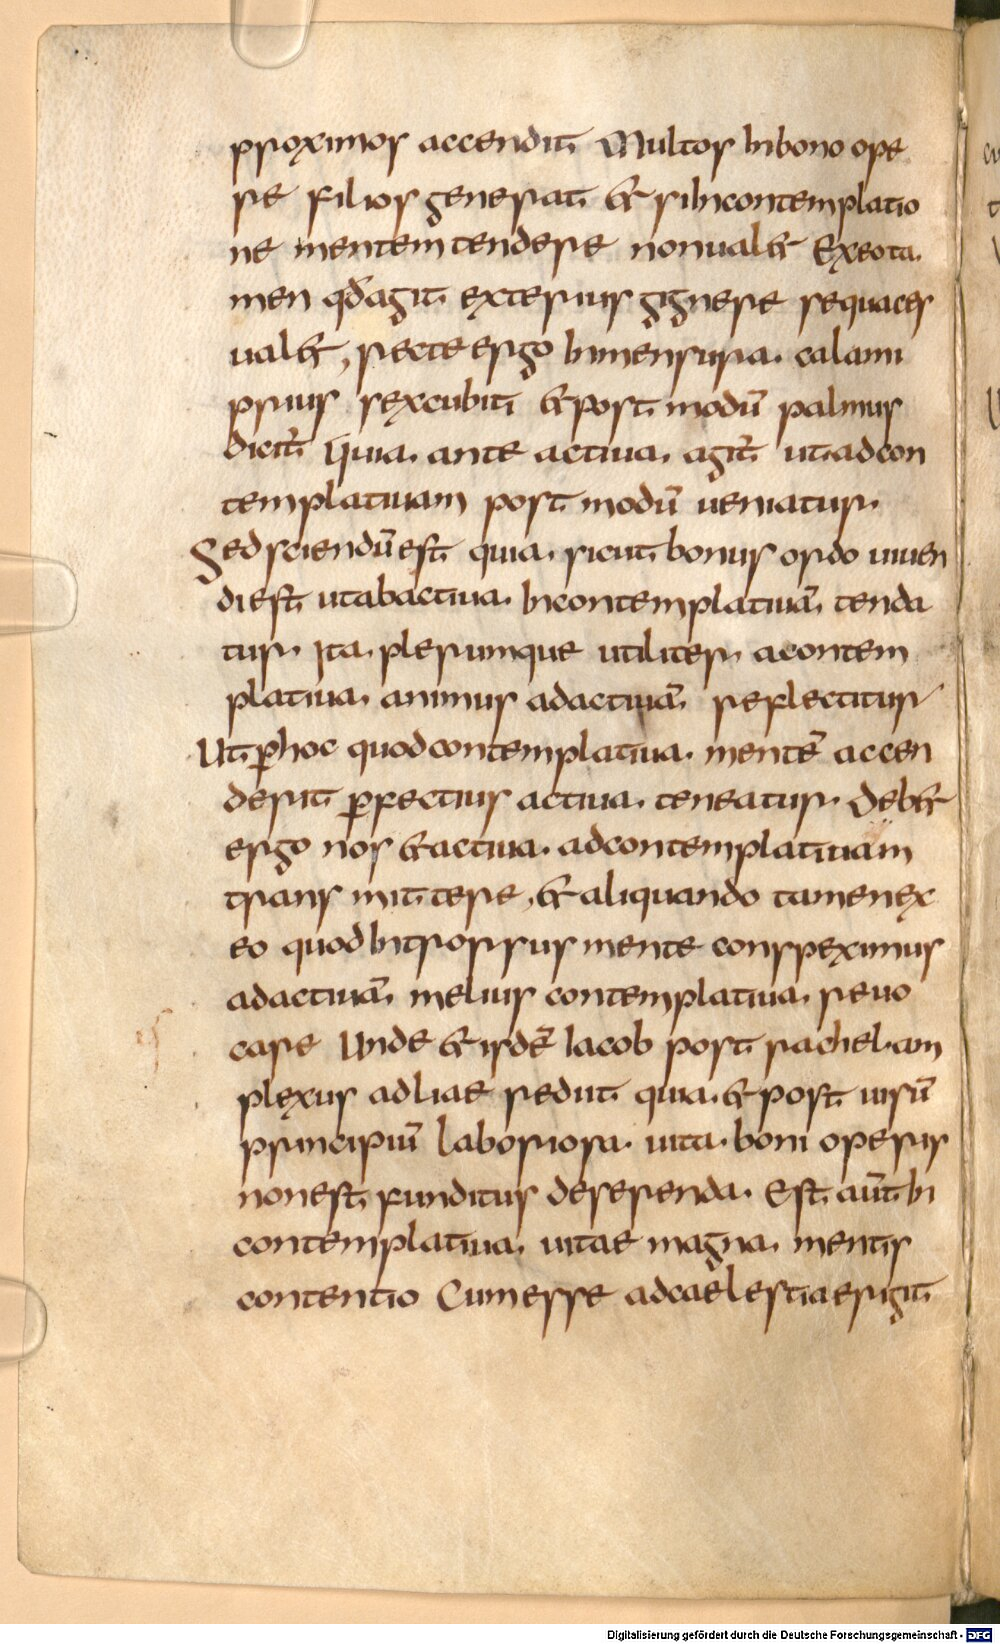 proximos accendit. Multos in bono ope
re filios generat. & si in contemplatio
ne mentem tendere non ual& Ex eo ta
men qđ agit. exterius gignere sequaces
ual&, recte ergo in mensura. calami
prius sex cubiti &post modū palmus
dicit̄ Quia. ante actiua. agit̄ ut. ad con
templatiuam post modū ueniatur.
Sed sciendū est. quia. sicut. bonus ordo uiuen
di est. ut ab actiua. in contemplatiuā. tenda
tur. Ita. plerumque utiliter. a contem
platiua. animus ad actiuā. reflectitur
Ut. ꝑhoc quod contemplatiua. mentē accen
derit ꝑfectius actiua. teneatur. Deb&
ergo nos & actiua. ad contemplatiuam
trans mittere, & aliquando tamen ex
eo quod introrsus mente conspeximus
ad actiuā. melius contemplatiua. reuo
care Unde & isdē Iacob post rachel. am
plexus ad liae rediit. quia. & post. uisū
principiū laboriosa. uita. boni operis
non est. funditus deserenda. Est. aūt. in
contemplatiua. uitae magna. mentis
contentio Cum esse ad caelestia erigit.
Digitalisierung gefördert durch die Deutsche Forschungsgemeinschaft - DFG